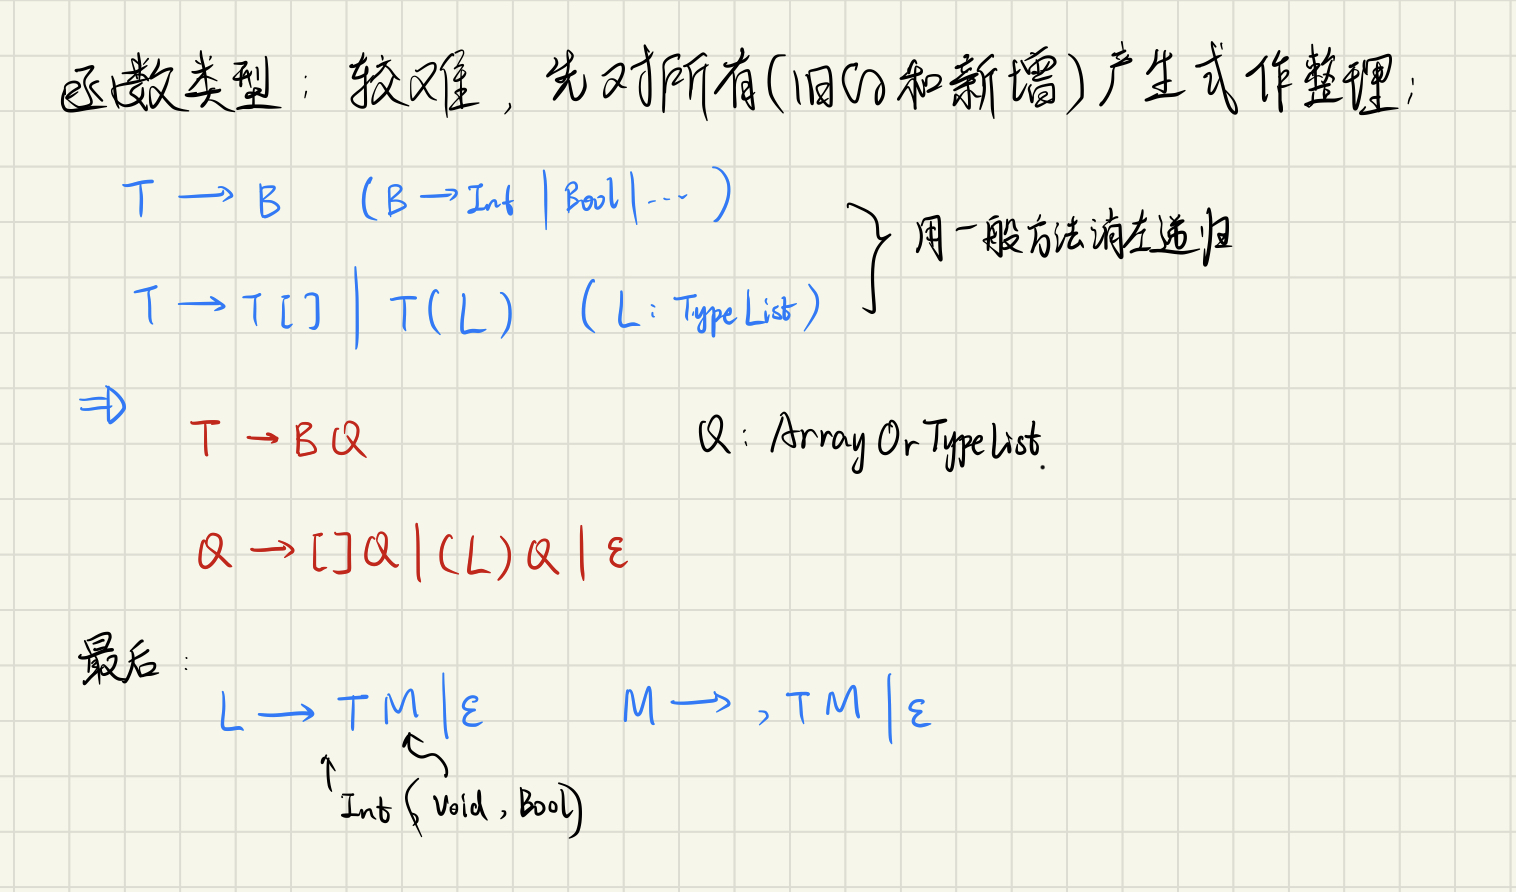 函数类型：较难，先对所有(旧的和新增)产生式作整理：
T → B (B → Int | Bool | ...)
用一般方法消左递归
T → T [ ] | T ( L ) ( L : TypeList )
⇒
T → B Q Q : ArrayOrTypeList.
Q → [ ] Q | ( L ) Q | ε
最后：
L → T M | ε M → , T M | ε
Int ( Void , Bool )